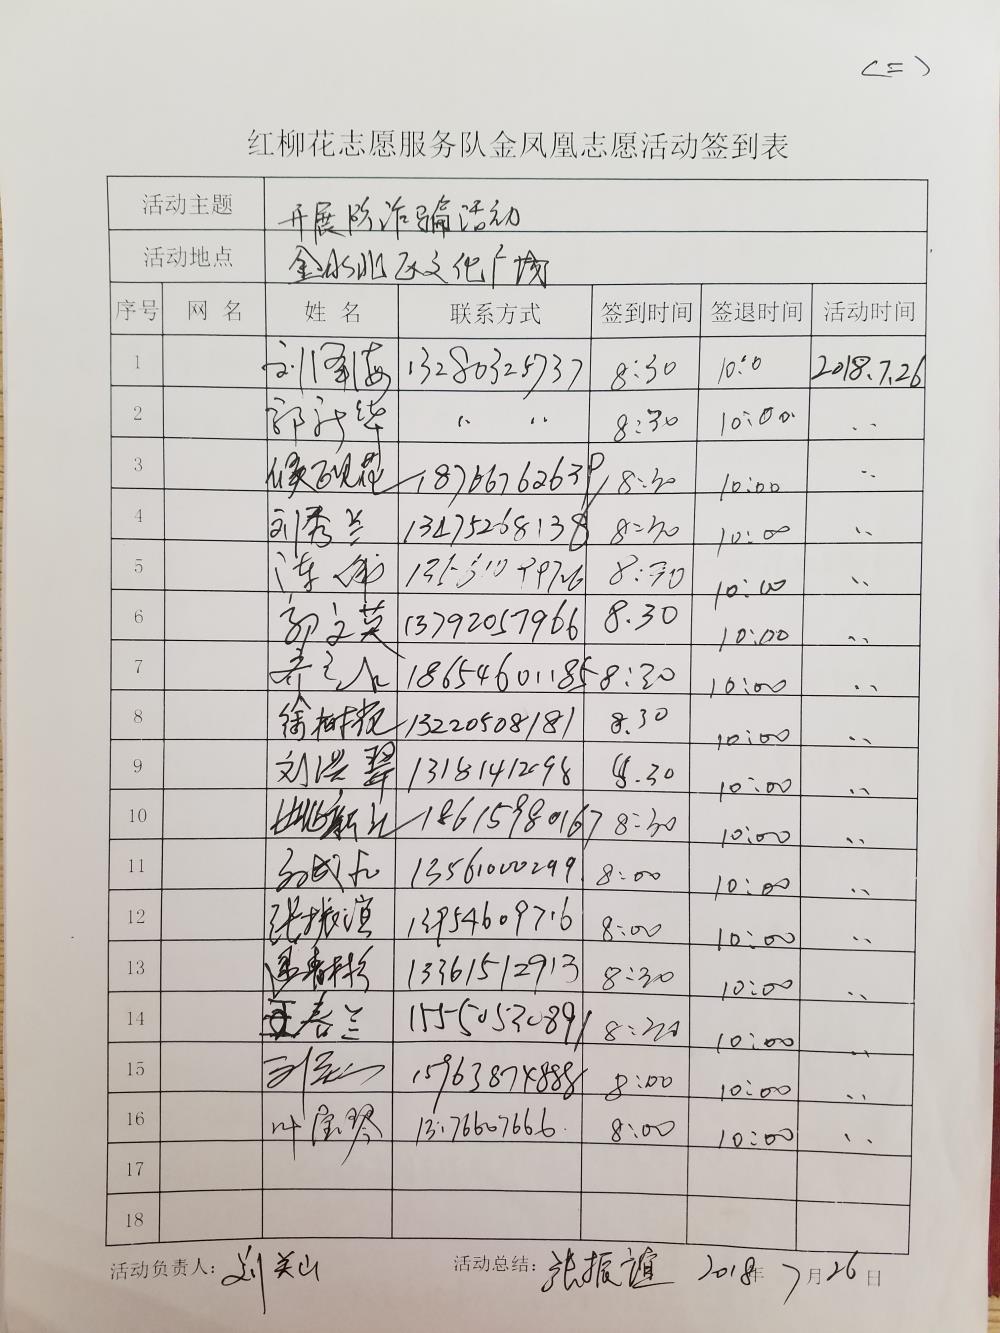 (二)
红柳花志愿服务队金凤凰志愿活动签到表
活动主题 开展防诈骗活动
活动地点 金水北区文化广场
序号 网名 姓名 联系方式 签到时间 签退时间 活动时间
1 刘泽海 13280325737 8:30 10:0 2018.7.26
2 郭新华 〃 〃 8:30 10:00 〃
3 侯砚花 18766762639 8:30 10:00 〃
4 刘秀兰 13475268138 8:30 10:00 〃
5 8:30 10:00 〃
6 郭文英 13792057966 8.30 10:00 〃
7 18654601185 8:30 10:00 〃
8 徐树 13220508181 8.30 10:00 〃
9 刘洪翠 13181412498 8.30 10:00 〃
10 18615980167 8:30 10:00 〃
11 13561000299 8:00 10:00 〃
12 张振谊 13954609716 8:00 10:00 〃
13 13361512913 8:30 10:00 〃
14 王春兰 15550530891 8:30 10:00 〃
15 15963874888 8:00 10:00 〃
16 叶宝琴 13176607666 8:00 10:00 〃
17
18
活动负责人: 刘英山 活动总结: 张振谊 2018年7月26日